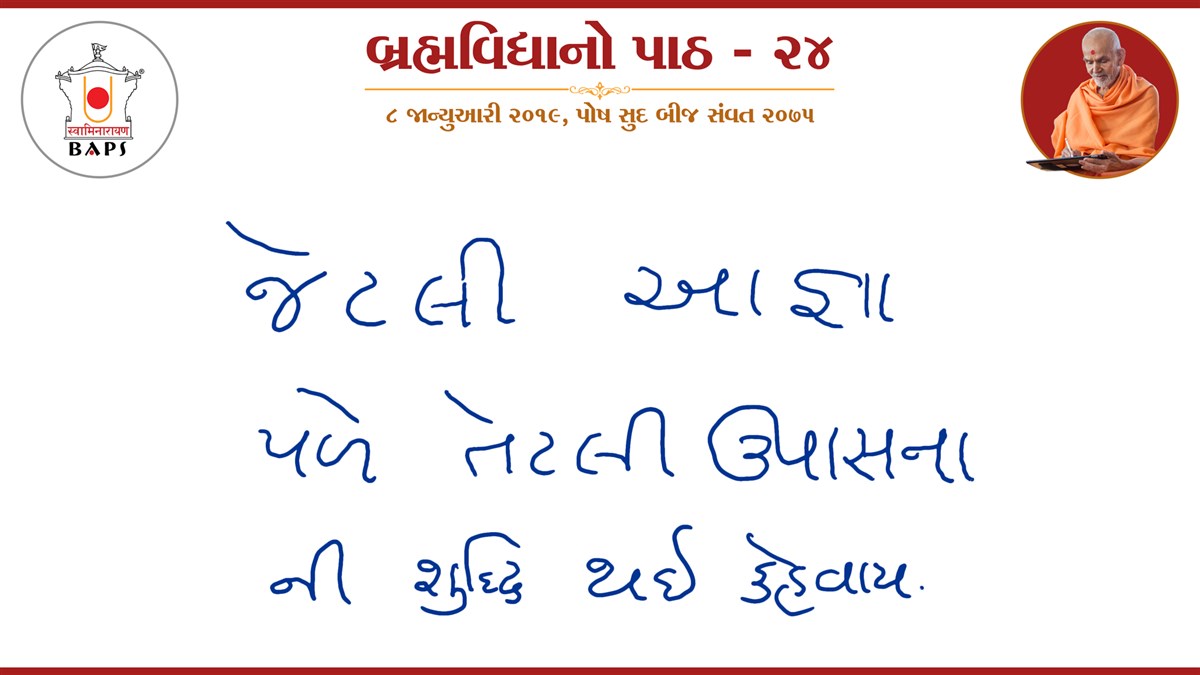 બ્રહ્મવિદ્યાનો પાઠ - ૨૪
૮ જાન્યુઆરી ૨૦૧૯, પોષ સુદ બીજ સંવત ૨૦૭૫
स्वामिनारायण
BAPS
જેટલી આજ્ઞા
પળે તેટલી ઉપાસના
ની શુદ્ધિ થઈ કહેવાય.